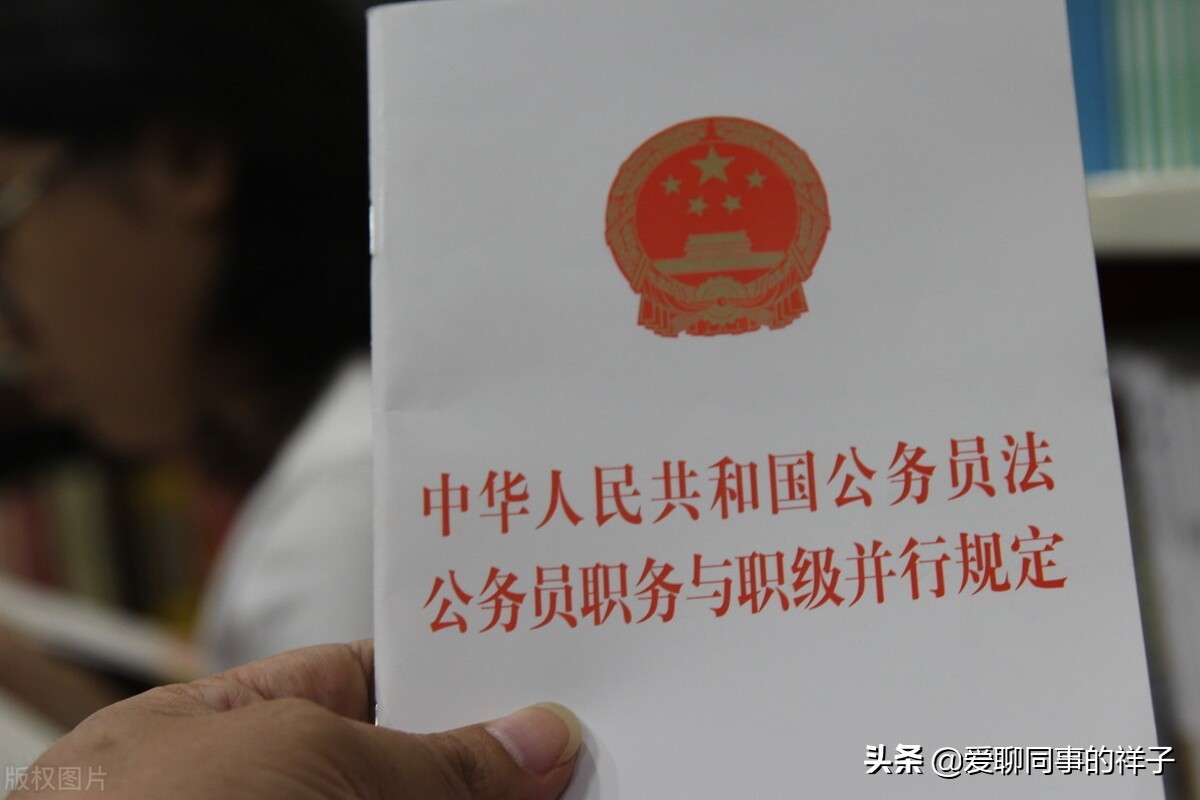 中华人民共和国公务员法
公务员职务与职级并行规定
版权图片
头条 @爱聊同事的祥子